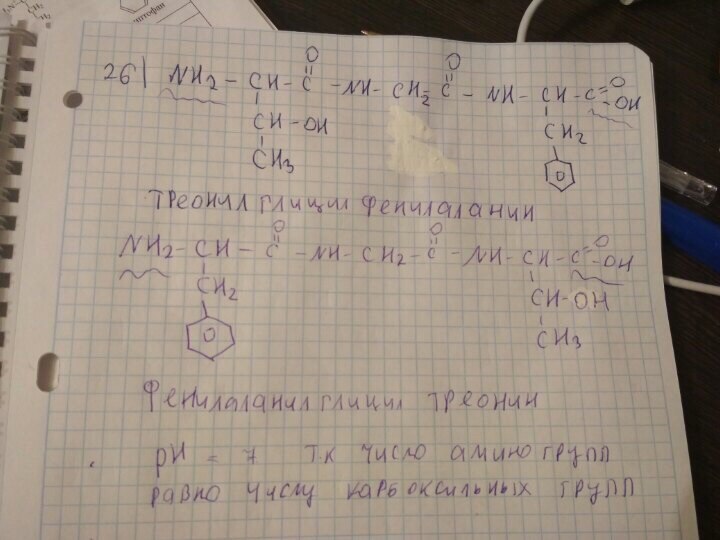 26) NH2 - CH - C - NH - CH2 - C - NH - CH - C = O
O
O
OH
CH - OH
CH2
CH3
треонил глицил фенилаланин
O
O
NH2 - CH - C - NH - CH2 - C - NH - CH - C = O
- OH
CH2
CH - OH
CH3
Фенилаланил глицил треонин
pH = 7 т.к число амино групп
равно числу карбоксильных групп